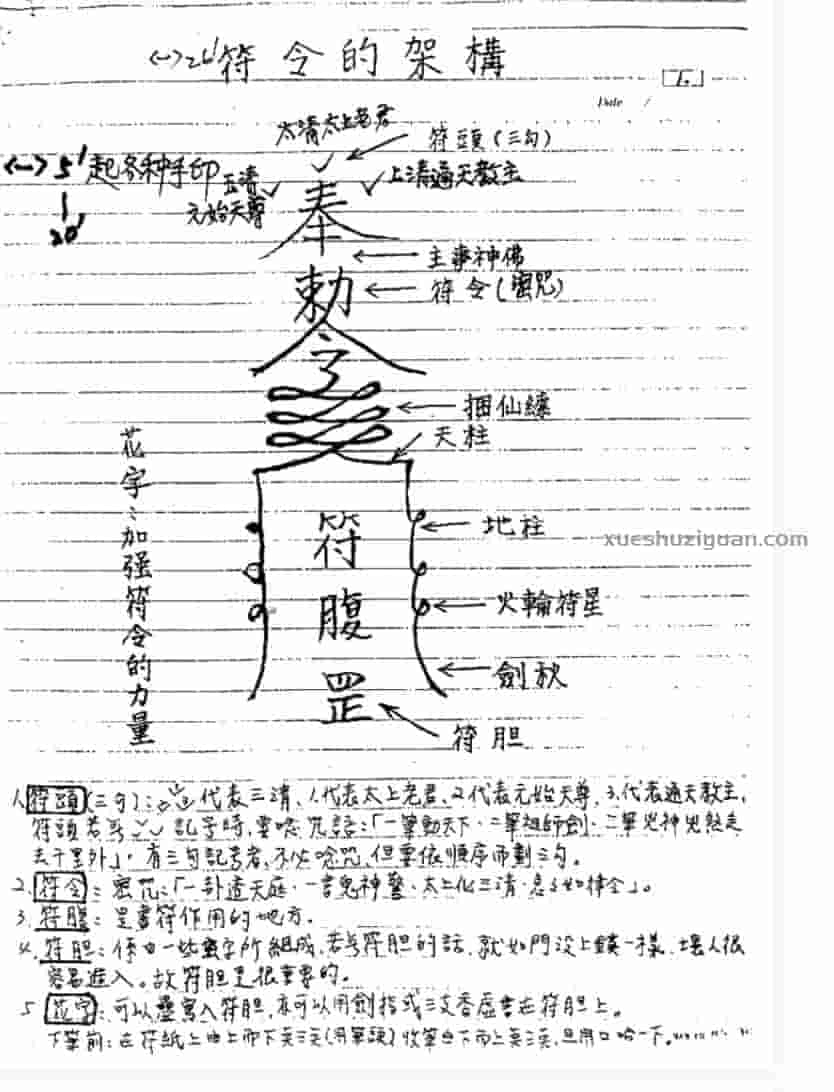 符令的架構
Date /
太清太上老君
符頭(三勾)
起各種手印
玉清
元始天尊
上清通天教主
奉
主事神佛
勅
符令(密咒)
令
捆仙繩
天柱
花字:加强符令的力量
地柱
xueshuziguan.com
符
腹
罡
火輪符星
劍秋
符胆
1.符頭(三勾):代表三清、1.代表太上老君、2.代表元始天尊、3.代表通天教主,
符頭若畫記号時,要唸咒語:「一筆動天下、二筆祖師劍、三筆兇神兇煞走
去千里外」,有三勾記号者,不必唸咒,但要依順序而劃三勾。
2.符令:密咒:「一卦透天庭、一書鬼神驚、太上化三清、急急如律令」。
3.符腹:是書符作用的地方。
4.符胆:係由一些密字所組成,若無符胆的話,就如門沒上鎖一樣,壞人很
容易進入。故符胆是很重要的。
5.花字:可以疊寫入符胆,亦可以用劍指或三支香虛書在符胆上。
下筆前:在符紙上由上而下